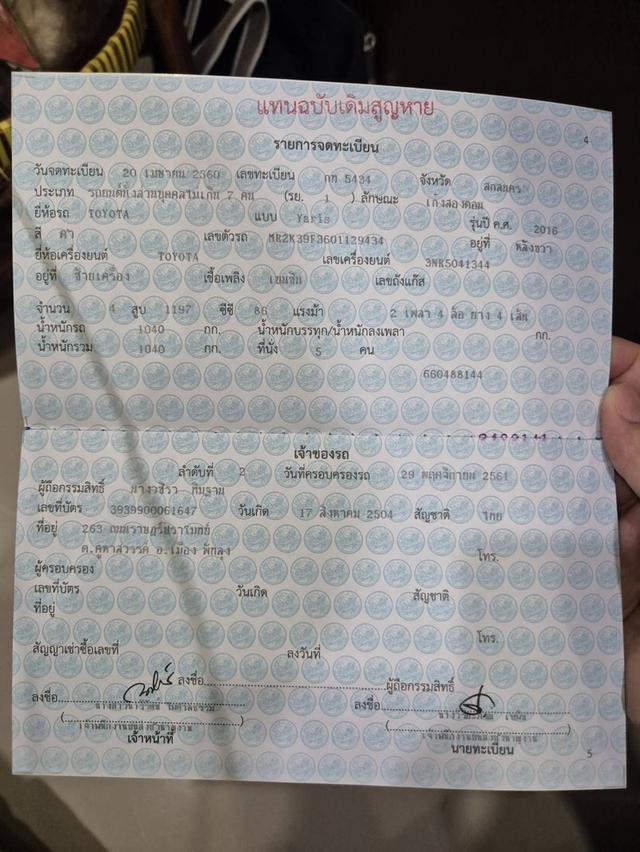 แทนฉบับเดิมสูญหาย
4
รายการจดทะเบียน
วันจดทะเบียน 20 เมษายน 2560 เลขทะเบียน กท 5434 จังหวัด สกลนคร
ประเภท รถยนต์นั่งส่วนบุคคลไม่เกิน 7 คน (รย. 1 ) ลักษณะ เก๋งสองตอน
ยี่ห้อรถ TOYOTA แบบ Yaris รุ่นปี ค.ศ. 2016
สี ดำ เลขตัวรถ MR2K39F3601129434 อยู่ที่ หลังขวา
ยี่ห้อเครื่องยนต์ TOYOTA เลขเครื่องยนต์ 3NR5041344
อยู่ที่ ซ้ายเครื่อง เชื้อเพลิง เบนซิน เลขถังแก๊ส
จำนวน 4 สูบ 1197 ซีซี 86 แรงม้า 2 เพลา 4 ล้อ ยาง 4 เส้น
น้ำหนักรถ 1040 กก. น้ำหนักบรรทุก/น้ำหนักลงเพลา กก.
น้ำหนักรวม 1040 กก. ที่นั่ง 5 คน
660488144
เจ้าของรถ
ลำดับที่ 2 วันที่ครอบครองรถ 29 พฤศจิกายน 2561
ผู้ถือกรรมสิทธิ์
เลขที่บัตร 3939900061647 วันเกิด 17 สิงหาคม 2504 สัญชาติ ไทย
ที่อยู่ 263
ต.คูหาสวรรค์ อ.เมือง พัทลุง โทร.
ผู้ครอบครอง
เลขที่บัตร วันเกิด สัญชาติ
ที่อยู่
โทร.
สัญญาเช่าซื้อเลขที่ ลงวันที่
ลงชื่อ ผู้ถือกรรมสิทธิ์
ลงชื่อ ลงชื่อ
เจ้าหน้าที่ นายทะเบียน
5